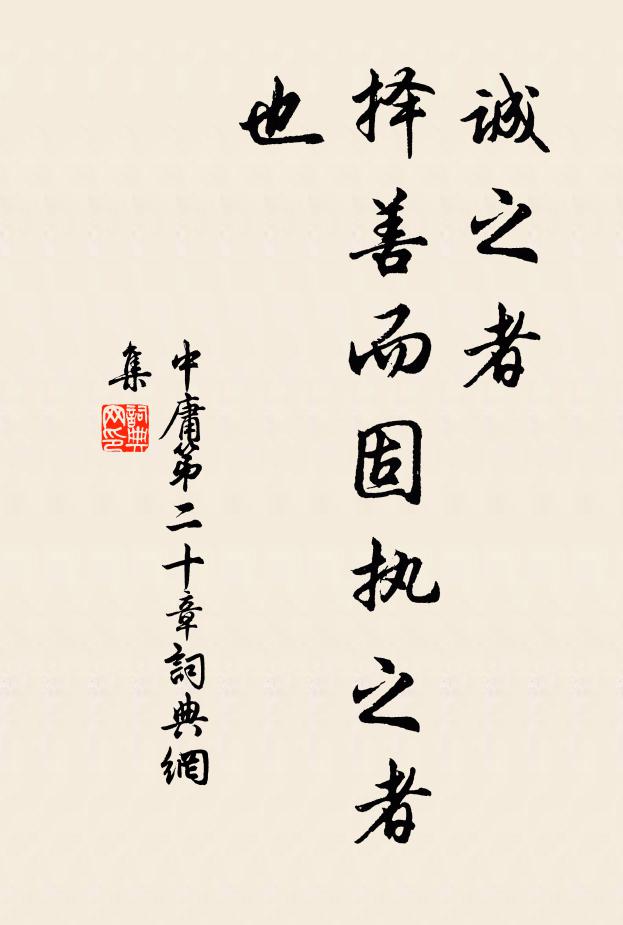 誠之者
择善而固执之者
也
中庸第二十章詞典網
集
詞典
网印